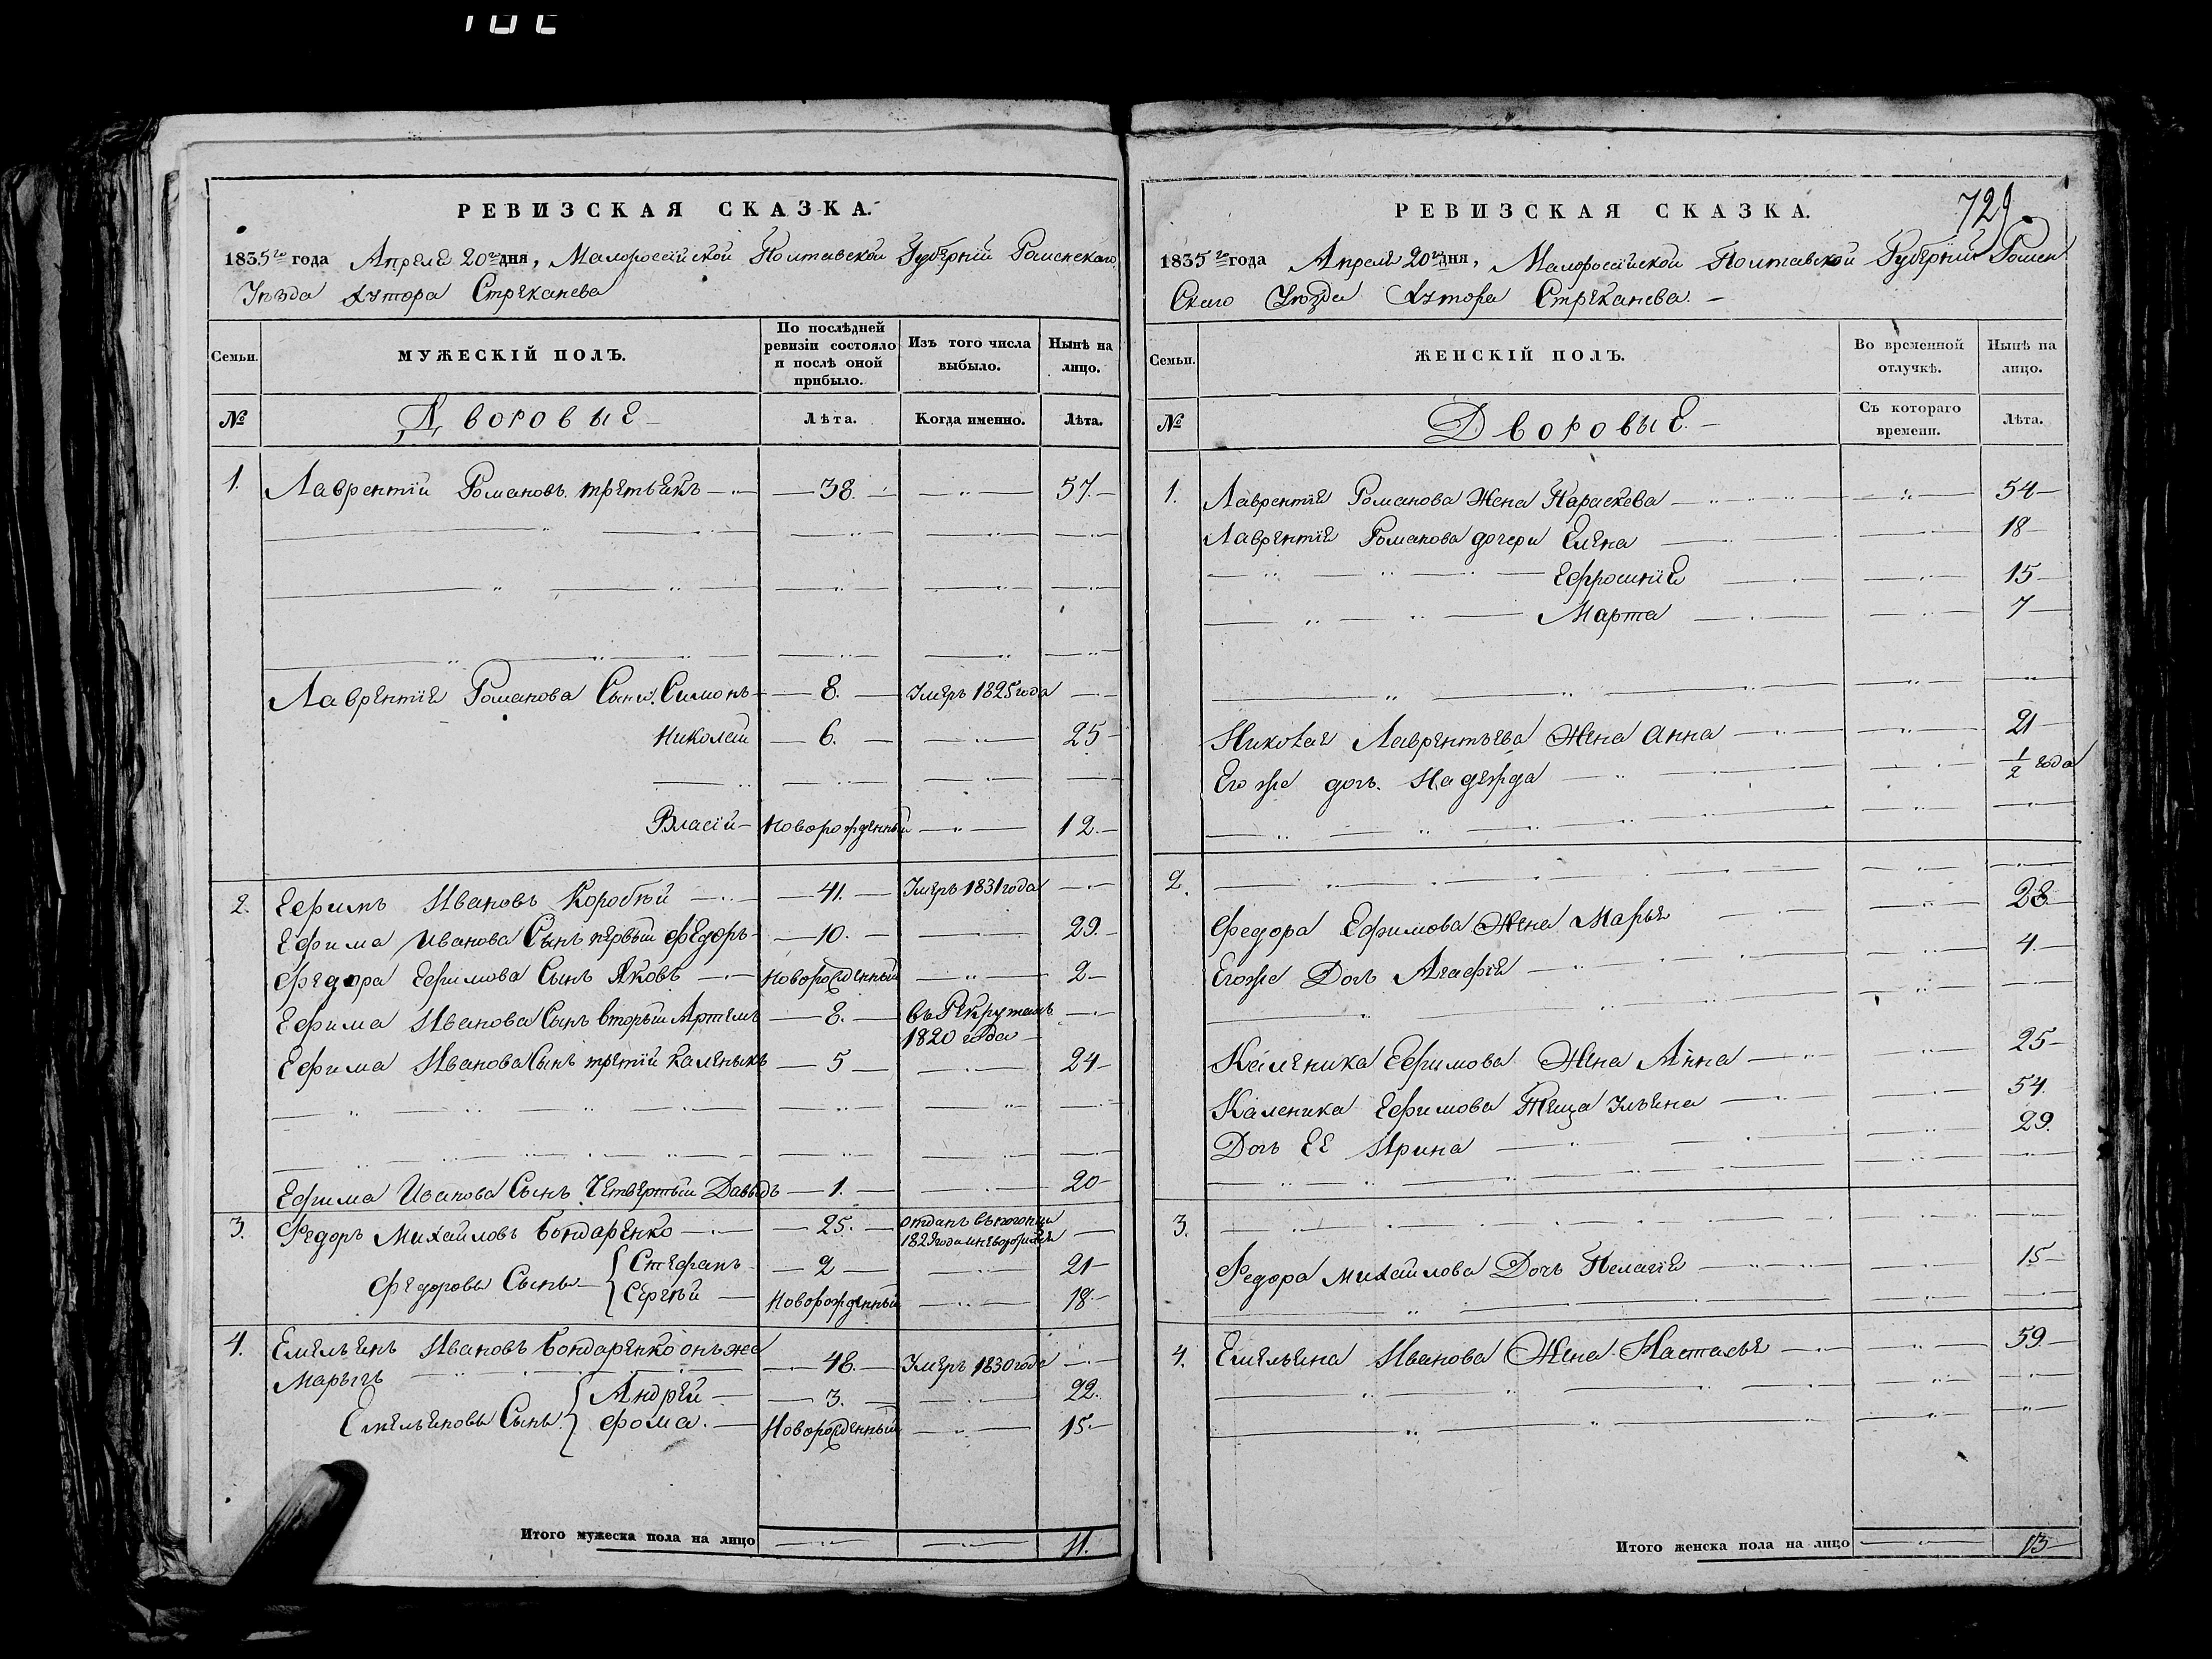 РЕВИЗСКАЯ СКАЗКА.
1835го года Апреля 20го дня, Малоросійской Полтавской Губерніи Роменскаго
Уезда Хутора Стреканева
Семьи.
МУЖЕСКІЙ ПОЛЪ.
По послѣдней ревизіи состояло и послѣ оной прибыло.
Изъ того числа выбыло.
Нынѣ на лицо.
№
Дворовые
Лѣта.
Когда именно.
Лѣта.
1. Лаврентій Романовъ третьякъ 38. 57.
Лаврентія Романова Сыны. Симонъ 8. Умеръ 1825 года
Николай 6. 25
Власій Новорожденный 12.
2. Ефимъ Ивановъ Коробкий 41. Умеръ 1831 года
Ефима Иванова Сынъ первый Федоръ 10. 29.
Федора Ефимова Сынъ Яковъ Новорожденный 2
Ефима Иванова Сынъ вторый Артемъ 8. въ Рекрутахъ 1820 года
Ефима Иванова Сынъ третій Каленыкъ 5 24
Ефима Иванова Сынъ Четвертый Давыдъ 1. 20
3. Федоръ Михайловъ Бондаренко 25. отданъ въ погонци
Федоровы Сыны Стефанъ 2 21
Сергѣй Новорожденный 18.
4. Емельянъ Ивановъ Бондаренко онъ же
Марычъ 48. Умеръ 1830 года
Емельяновы Сыны Андрей 3. 22.
Фома. Новорожденный 15.
Итого мужеска пола на лицо 11.
729.
РЕВИЗСКАЯ СКАЗКА.
1835го года Апреля 20го дня, Малоросійской Полтавской Губерніи Ромен
Скаго Уезда Хутора Стреканева.
Семьи.
ЖЕНСКІЙ ПОЛЪ.
Во временной отлучкѣ.
Нынѣ на лицо.
№
Дворовые.
Съ котораго времени.
Лѣта.
1. Лаврентія Романова Жена Параскева 54
Лаврентія Романова дочери Елена 18
Ефросинія 15
Марта 7
Николая Лаврентьева Жена Анна 21
Его же дочь Надежда 1/2 года
2.
Федора Ефимова Жена Марья 28
Его же Дочь Агафія 4.
Каленика Ефимова Жена Анна 25
Каленика Ефимова Теща Ульяна 54.
Дочь Ее Ирина 29.
3.
Федора Михайлова Дочь Пелагія 15
4. Емельяна Иванова Жена Настасья 59.
Итого женска пола на лицо 13